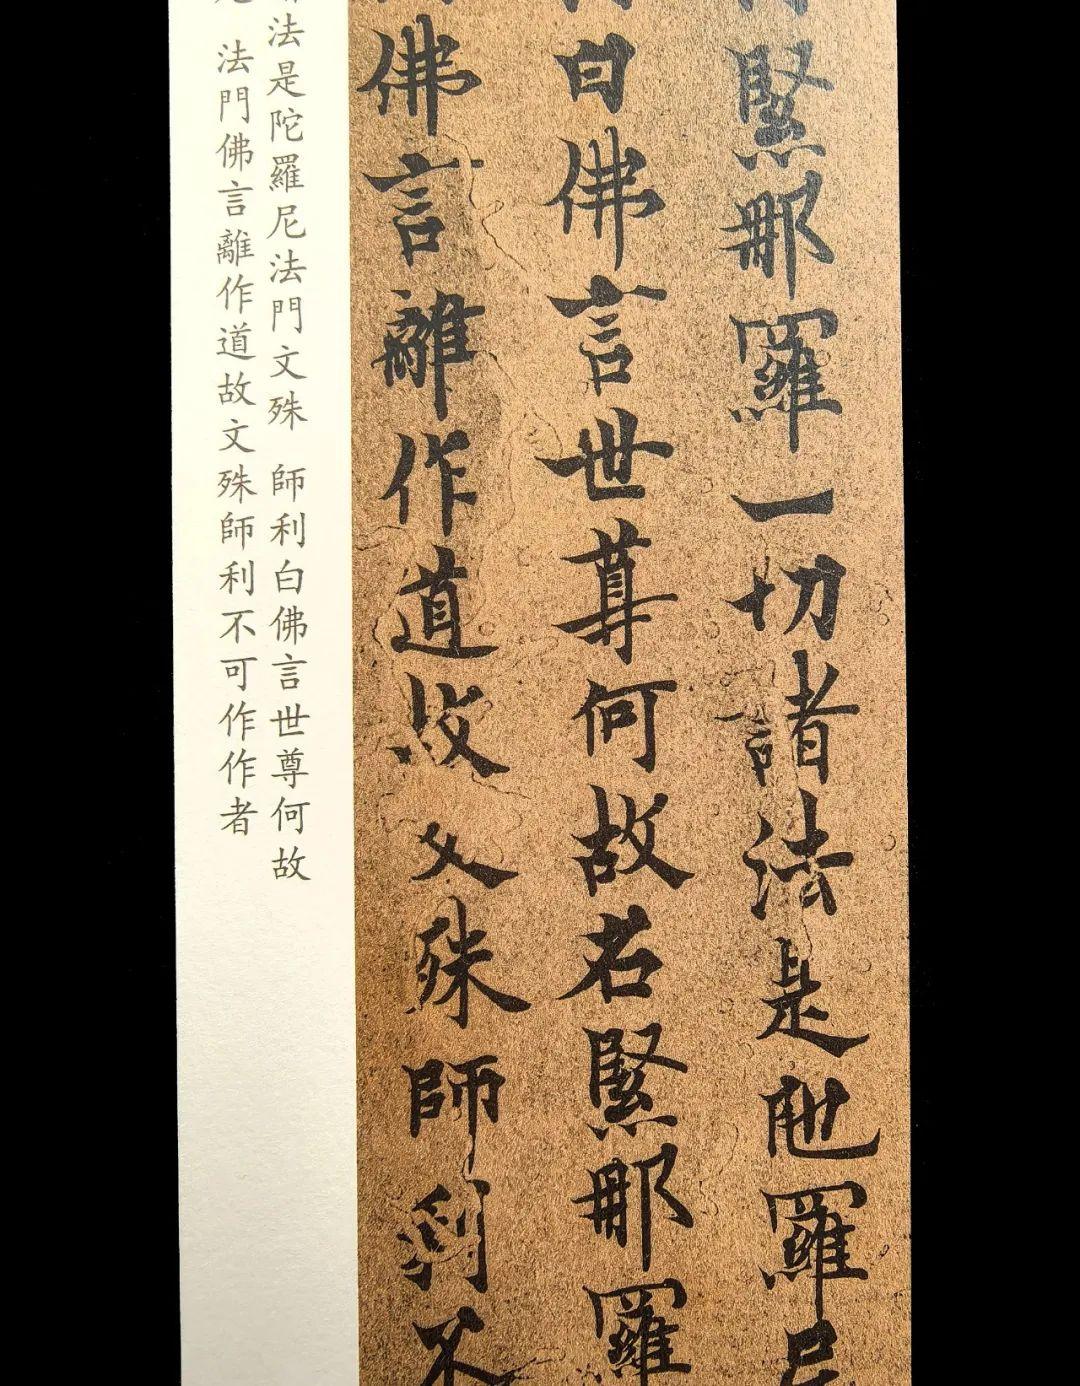 緊那羅一切諸法是陀羅尼
白佛言世尊何故名緊那羅
佛言離作道故文殊師利不
法是陀羅尼法門文殊 師利白佛言世尊何故
法門佛言離作道故文殊師利不可作作者